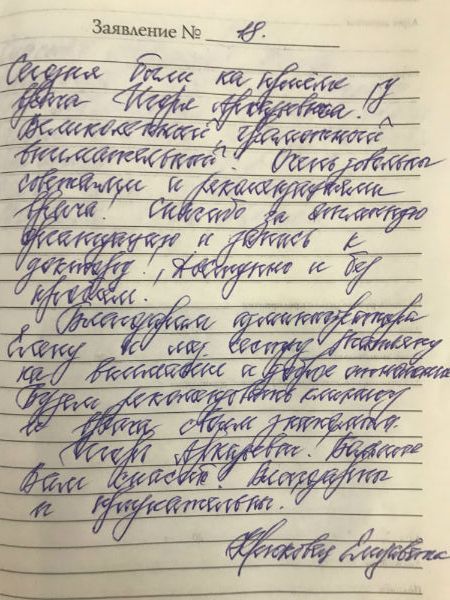 Заявление № 18.
Сегодня были на приёме у
врача Игоря Аркадьевича.
Великолепный, грамотный,
внимательный. Очень довольны
советами и рекомендациями
врача! Спасибо за отличную
организацию и запись к
доктору! Доступно и без
проблем.
Благодарим администратора
Елену и мед. сестру
на внимание и доброе отношение
Будем рекомендовать клинику
и врача своим знакомым.
Игорь Аркадьевич! Большое
Вам спасибо! Благодарны
и признательны.